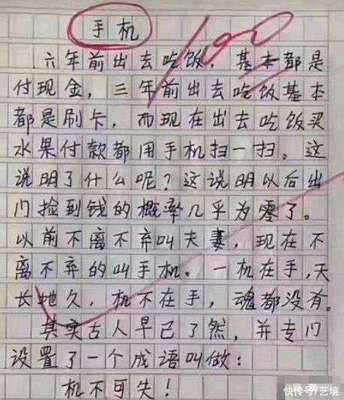 手机
100
六年前出去吃饭,基本都是
付现金,三年前出去吃饭基本
都是刷卡,而现在出去吃饭买
水果付款都用手机扫一扫。这
说明了什么呢?这说明以后出
门捡到钱的概率几乎为零了。
以前不离不弃叫夫妻,现在不
离不弃的叫手机。一机在手,天
长地久,机不在手,魂都没有。
其实古人早已了然,并专门
设置了一个成语叫做:
机不可失!
快传号/艺境